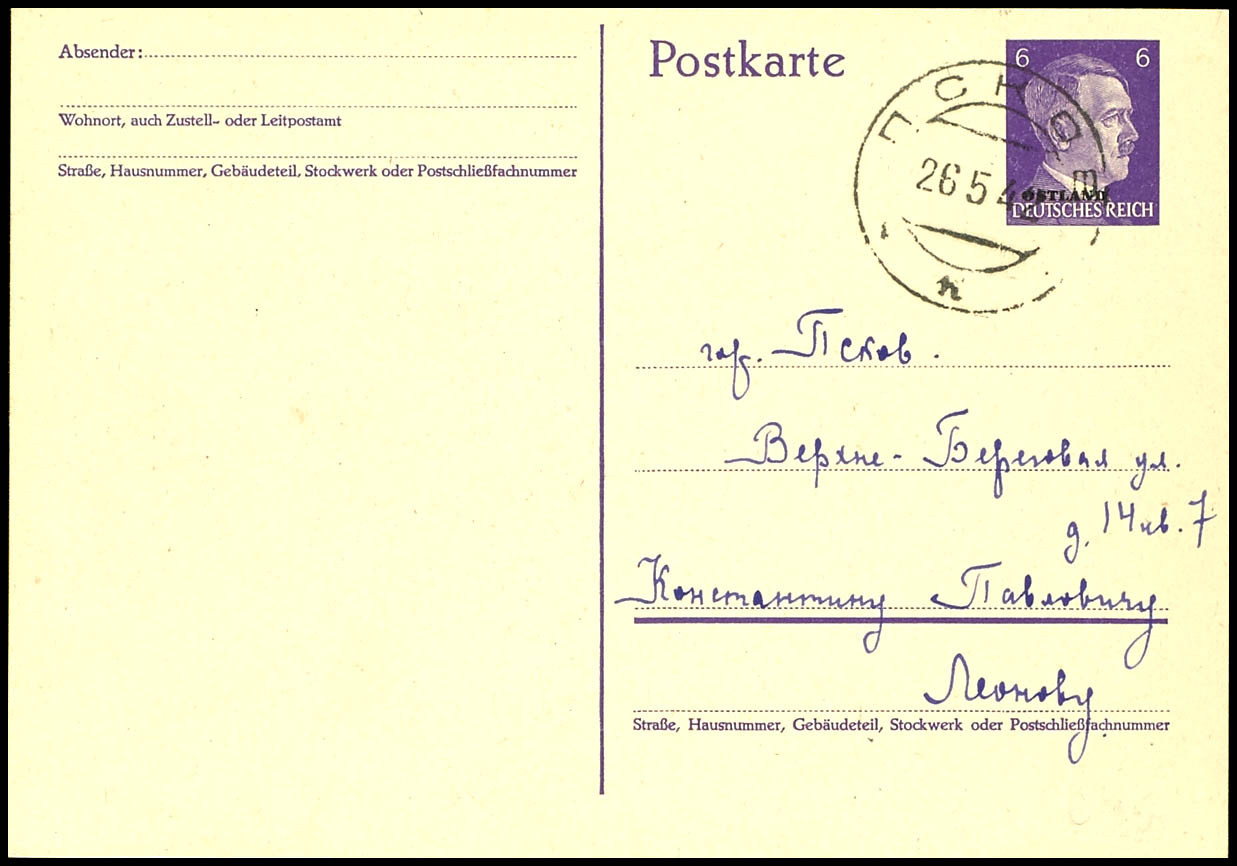 Absender:
Wohnort, auch Zustell- oder Leitpostamt
Straße, Hausnummer, Gebäudeteil, Stockwerk oder Postschließfachnummer
Postkarte
6 6
OSTLAND
DEUTSCHES REICH
ПСКО
26 5 4
n
гор. Псков.
Верхне-Береговая ул.
д. 14 кв. 7
Константину Павловичу
Леонову
Straße, Hausnummer, Gebäudeteil, Stockwerk oder Postschließfachnummer